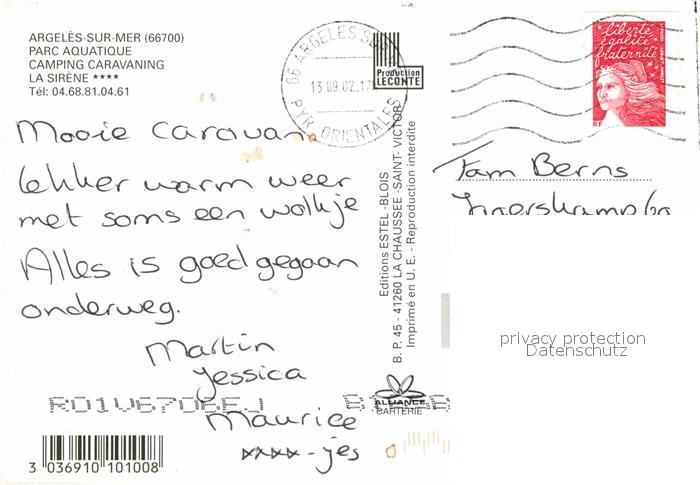 ARGELÈS-SUR-MER (66700)
PARC AQUATIQUE
CAMPING CARAVANING
LA SIRÈNE ****
Tél: 04.68.81.04.61
66 ARGELES SUR
13.09.02.17
PYR. ORIENTALES
Production
LECONTE
liberté
égalité
fraternité
RF
Mooie caravan.
lekker warm weer
met soms een wolkje
Alles is goed gegaan
onderweg.
Martin
Jessica
Maurice
xxxx-jes
Fam Berns
Editions ESTEL-BLOIS
B. P. 45 - 41260 LA CHAUSSEE-SAINT-VICTOR
Imprimé en U. E. - Reproduction interdite
privacy protection
Datenschutz
ALLIANCE
CARTERIE
3 036910 101008